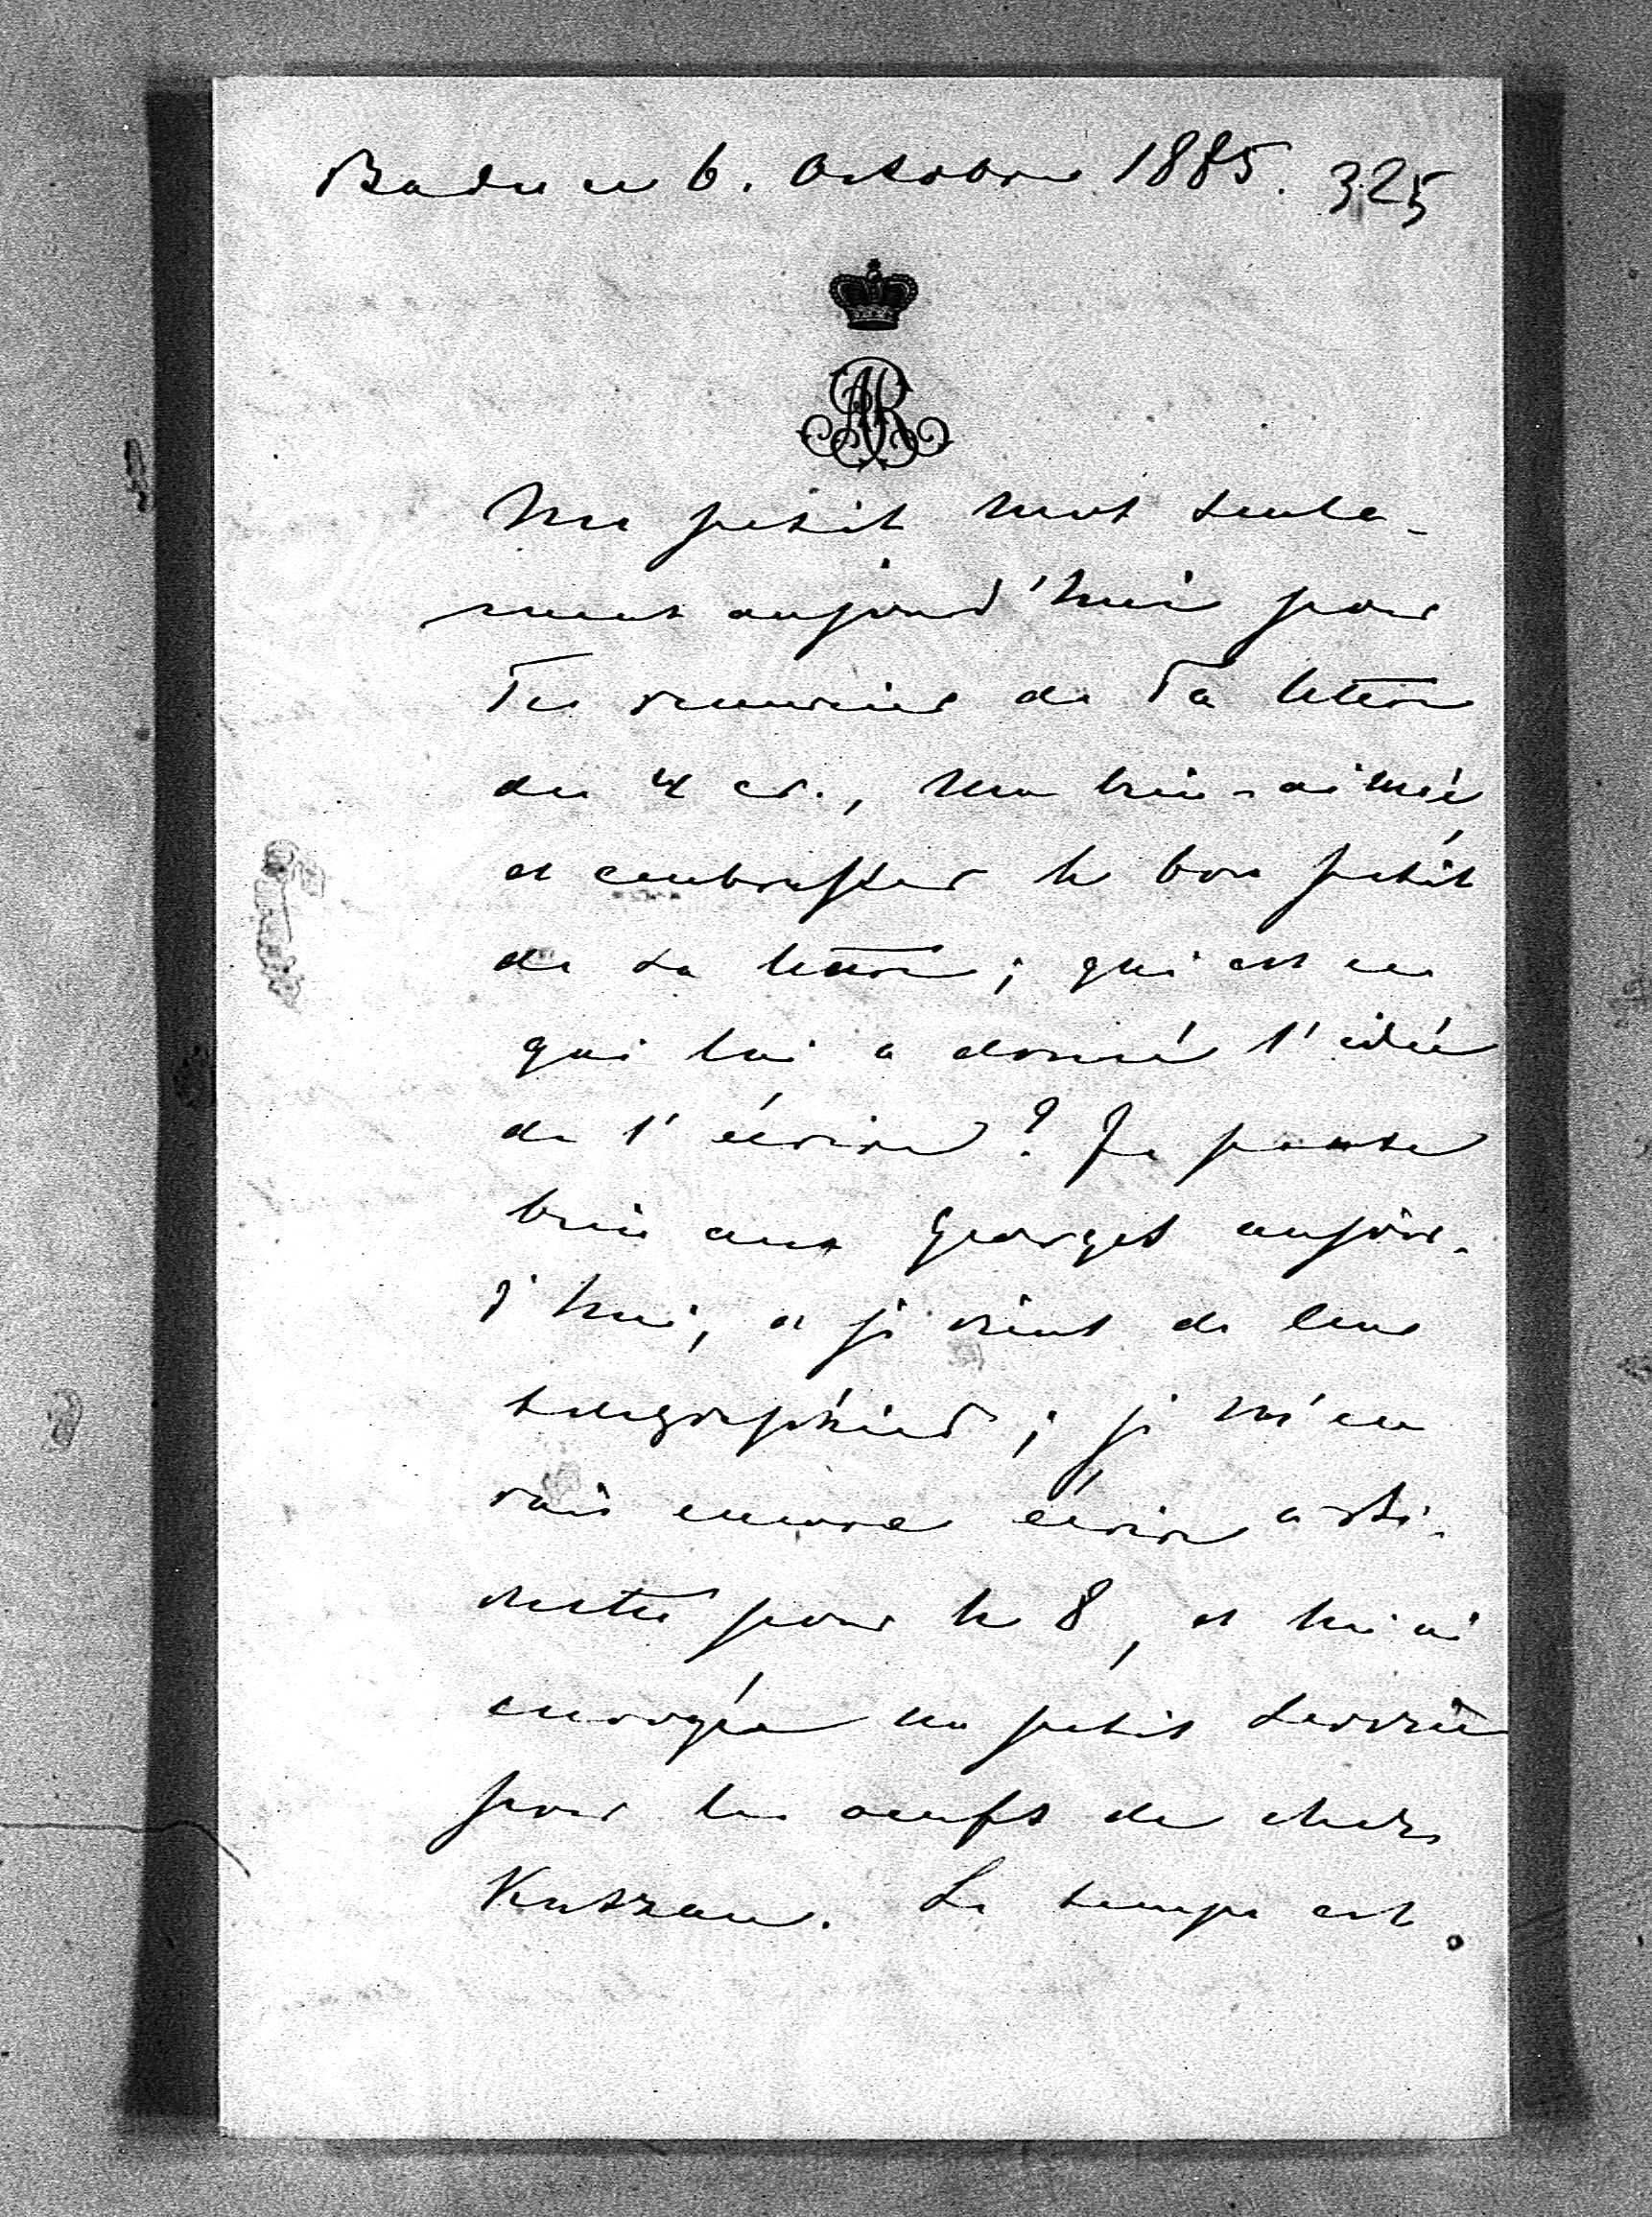 Bade ce 6. Octobre 1885. 325
AR
Un petit mot seule-
ment aujourd'hui pour
Te remercier de Ta lettre
du 4 cr., ma bien-aimée
et embrasser le bon petit
de sa lettre; qui est ce
qui lui a donné l'idée
de l'écrire? Je pense
bien aux Georges aujour-
d'hui, et je viens de leur
télégraphier; je m'en
vais encore écrire à
pour le 8, et lui ai
envoyé un petit
pour les oeufs de chez
. Le temps est